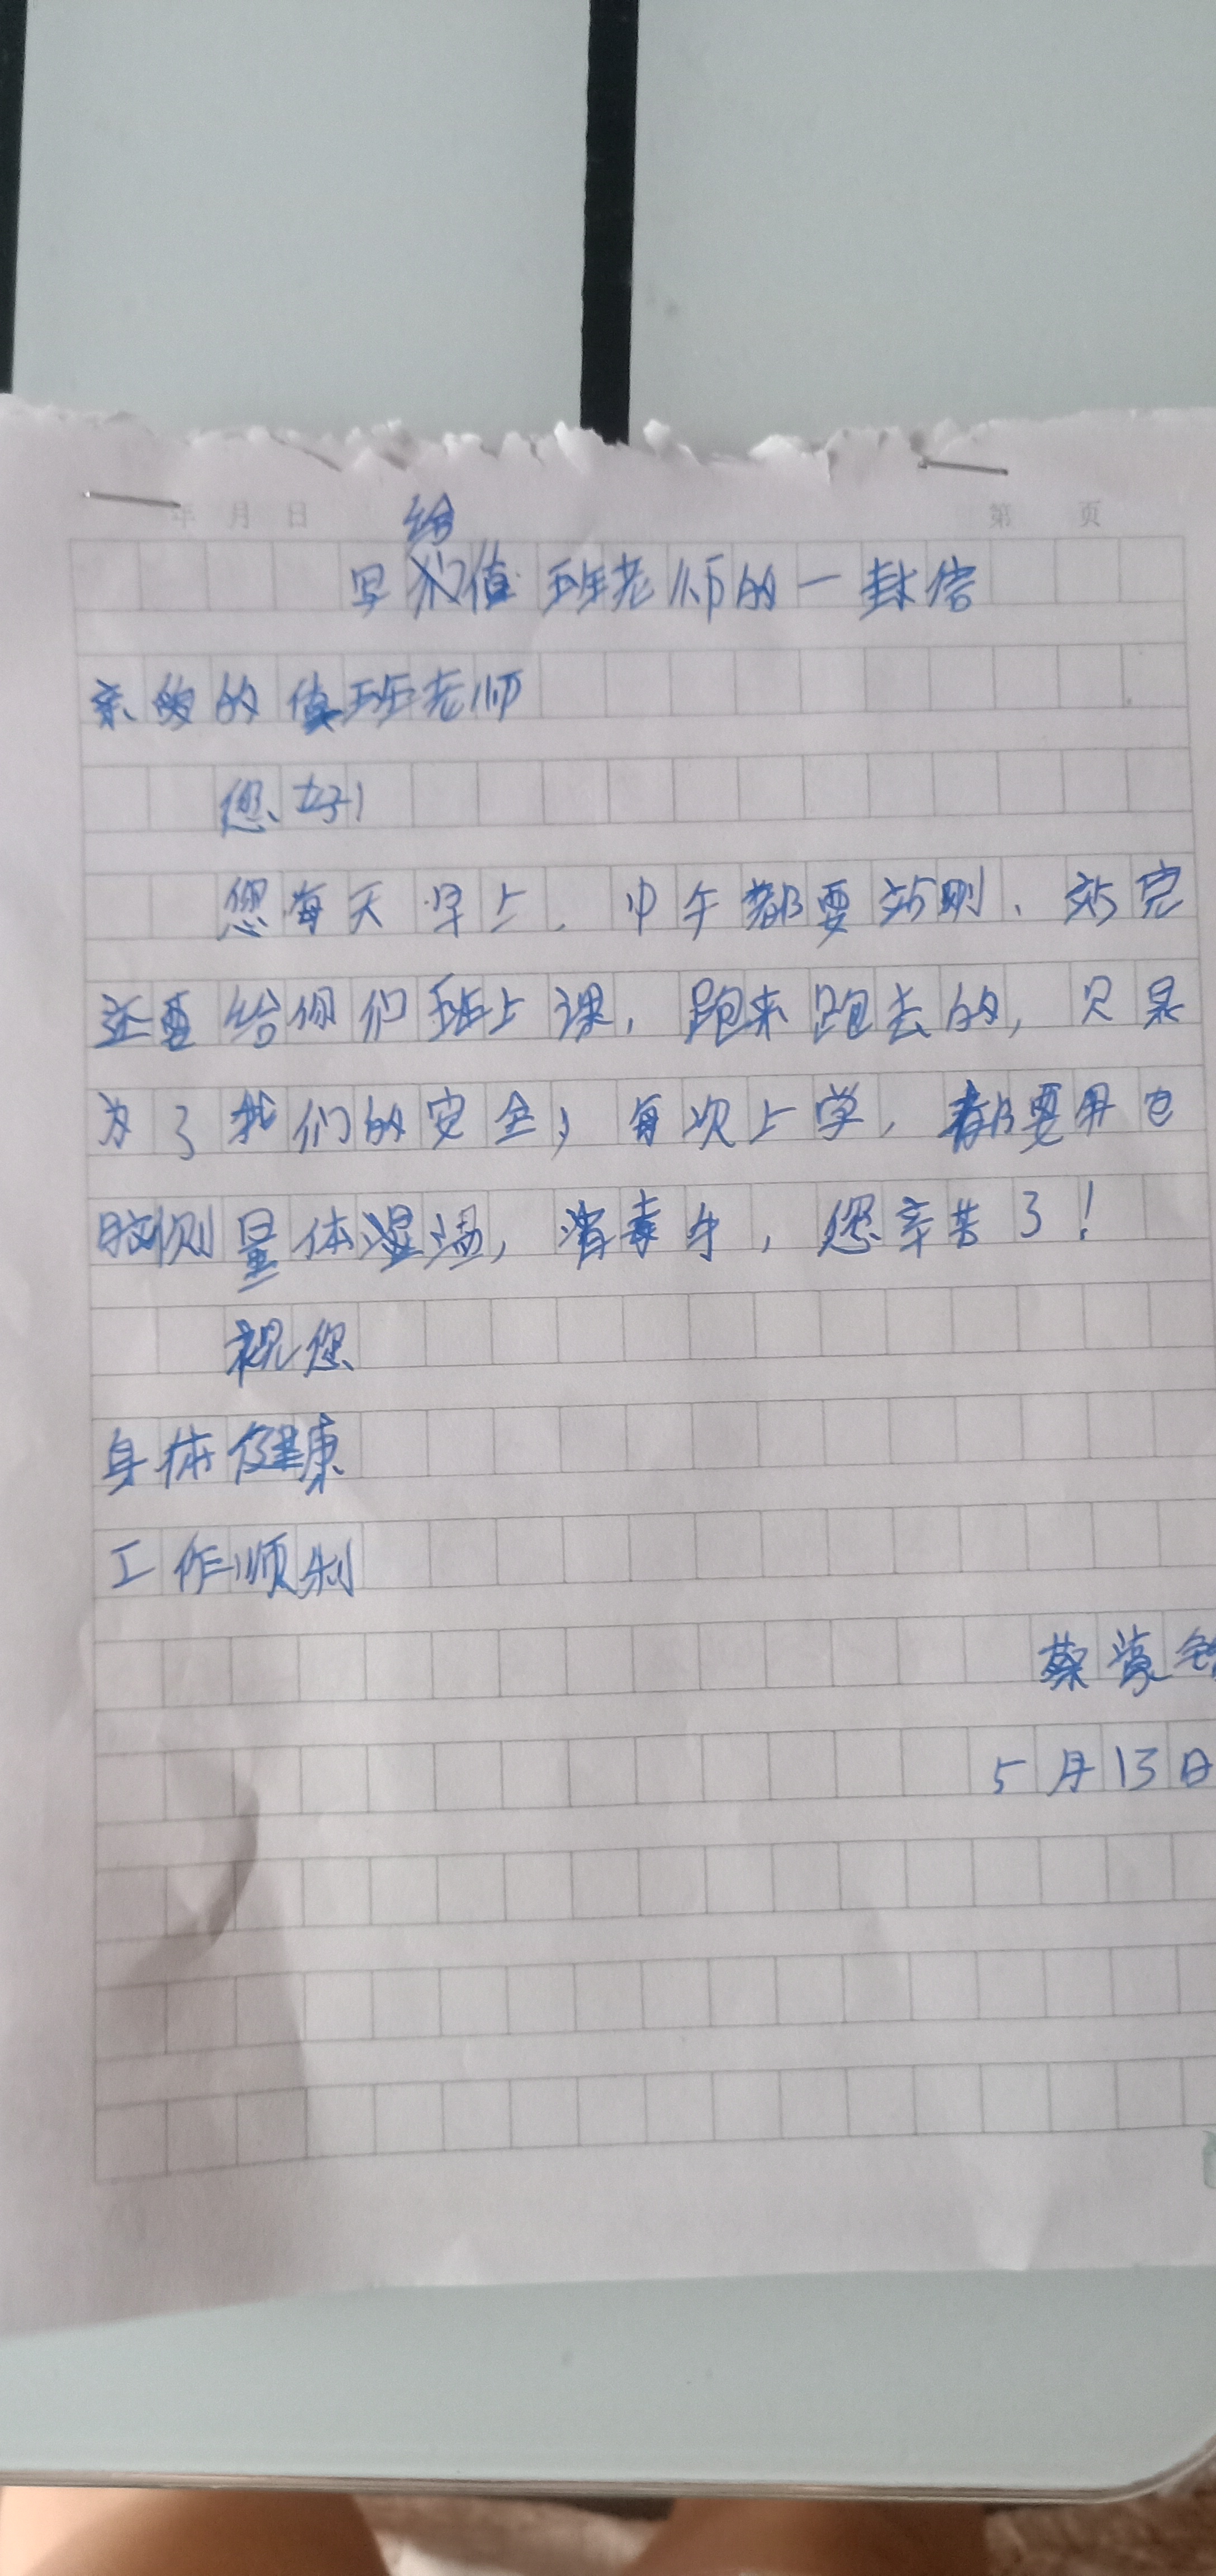 年 月 日 第 页
给
写 值班老师的一封信
亲的的值班老师
您好!
您每天早上、中午都要站刚、站完
还要给你们班上课,跑来跑去的,只是
为了我们的安全,每次上学,都要用电
脑测量体湿温,消毒手,您辛苦了!
祝您
身体健康
工作顺利
蔡
5月13日